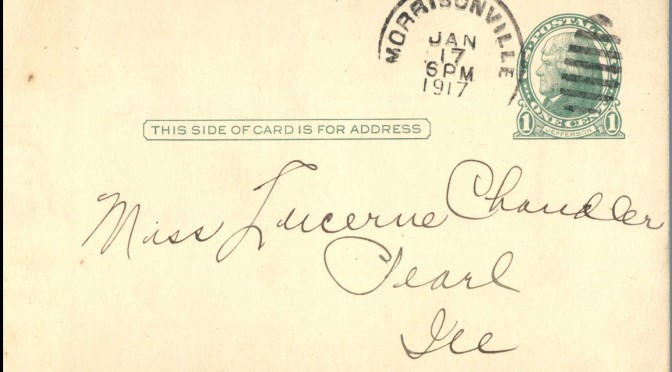 MORRISONVILLE
JAN
17
6PM
1917
POSTAL
ONE CENT
1 JEFFERSON 1
THIS SIDE OF CARD IS FOR ADDRESS
Miss Lucerne Chandler
Pearl
Ill